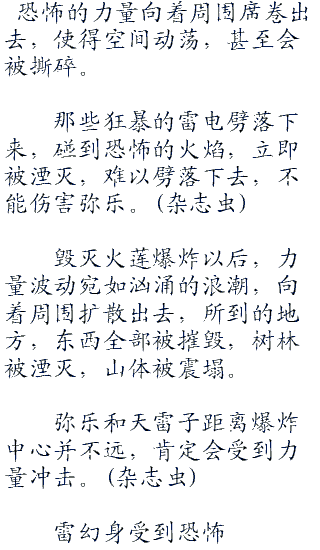 恐怖的力量向着周围席卷出
去，使得空间动荡，甚至会
被撕碎。
那些狂暴的雷电劈落下
来，碰到恐怖的火焰，立即
被湮灭，难以劈落下去，不
能伤害弥乐。(杂志虫)
毁灭火莲爆炸以后，力
量波动宛如汹涌的浪潮，向
着周围扩散出去，所到的地
方，东西全部被摧毁，树林
被湮灭，山体被震塌。
弥乐和天雷子距离爆炸
中心并不远，肯定会受到力
量冲击。(杂志虫)
雷幻身受到恐怖